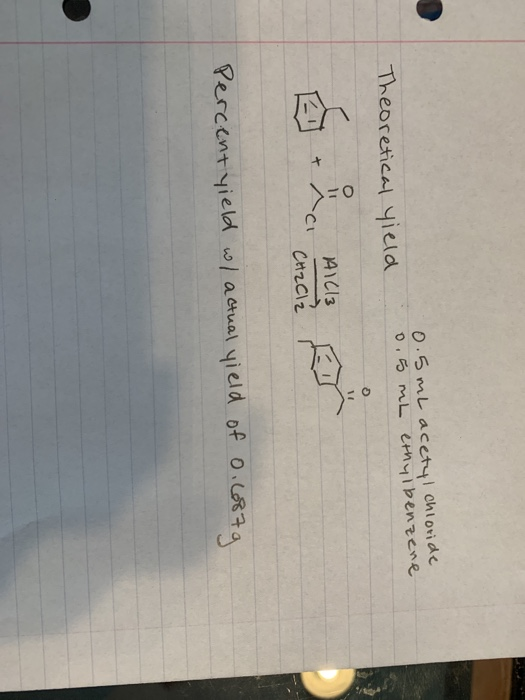 0.5 mL acetyl chloride
0.5 mL ethylbenzene
Theoretical yield
+ O Cl AlCl3 CH2Cl2 O
Percent yield w/ actual yield of 0.1687g